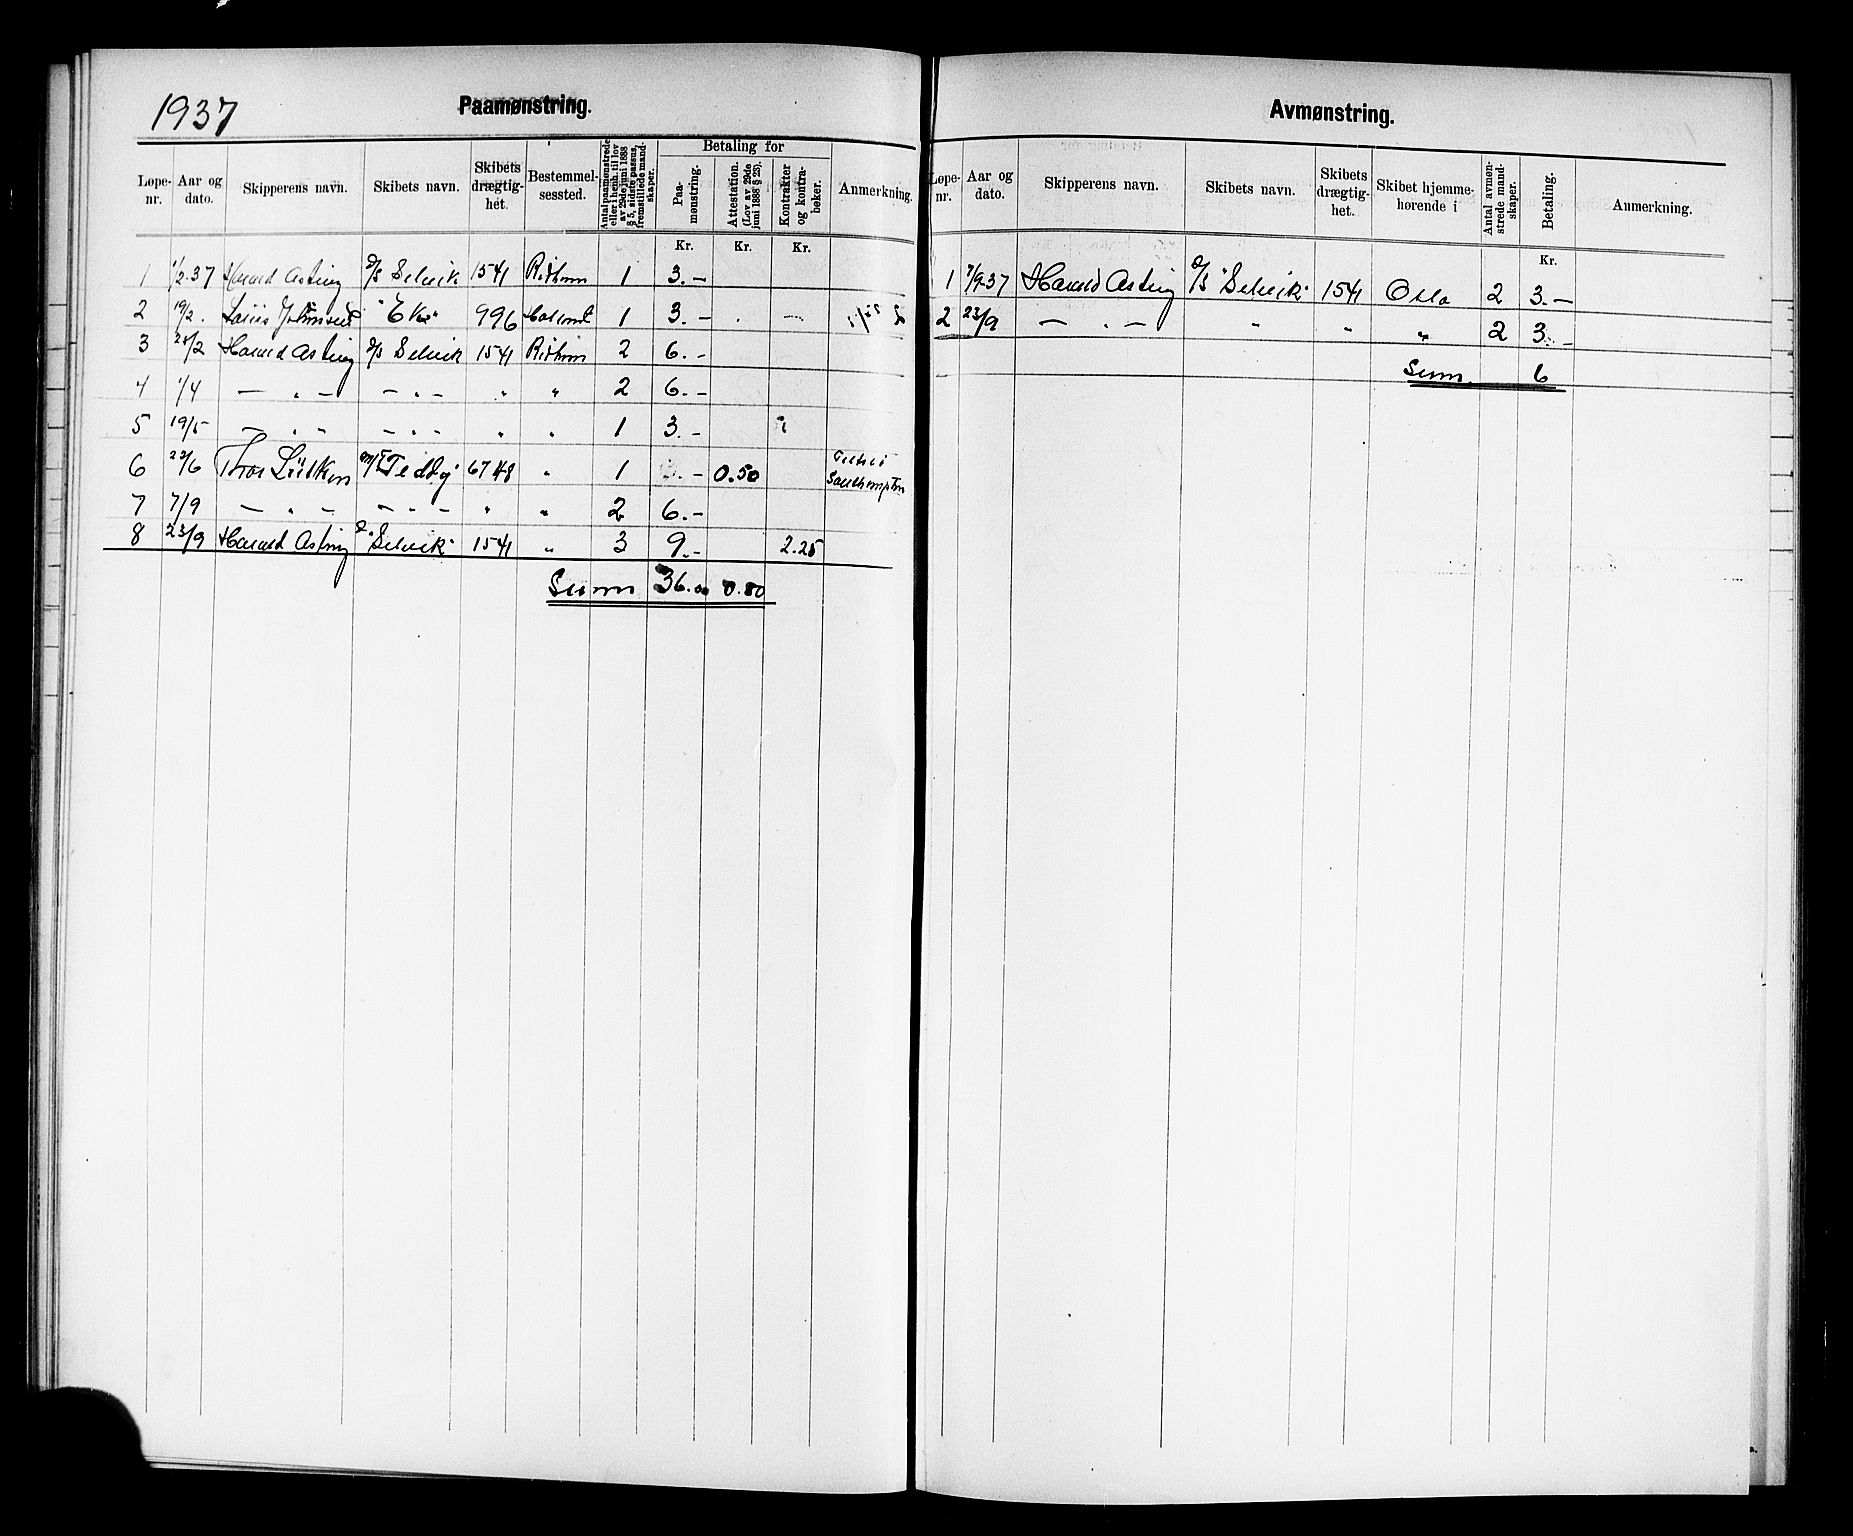 1937
Paamønstring.
Løpe-nr. Aar og dato. Skipperens navn. Skibets navn. Skibets drægtig-het. Bestemmel-sessted. Antal paamønstrede eller i henh. til lov av 29de juni 1888 § 5, sidste passus, fremstillede mand-skaper. Betaling for Paa-mønstring. Attestation. (Lov av 29de juni 1888 § 23). Kontrakter og kontra-bøker. Anmerkning.
Kr. Kr. Kr.
1 1/2.37 Harald Asting D/S Selvik 1541 1 3.-
2 19/2. 996 1 3.-
3 2 Harald Asting D/S Selvik 1541 2 6.-
4 1/4 — " — — " — " " 2 6.-
5 19/5 — " — — " — " " 1 3.-
6 /6 Thor Lütken M/T "Teddy" 6748 " 1 .- 0.50 Southampton
7 7/9 — " — — " — " " 2 6.-
8 23/9 Harald Asting "Selvik" 1541 " 3 9.- 2.25
Sum 36.00 0.80
Avmønstring.
Løpe-nr. Aar og dato. Skipperens navn. Skibets navn. Skibets drægtig-het. Skibet hjemme-hørende i Antal avmøn-strede mand-skaper. Betaling. Anmerkning.
Kr.
1 7/9-37 Harald Asting D/S "Selvik" 1541 Oslo 2 3.—
2 23/9 — " — " " " 2 3.—
Sum 6